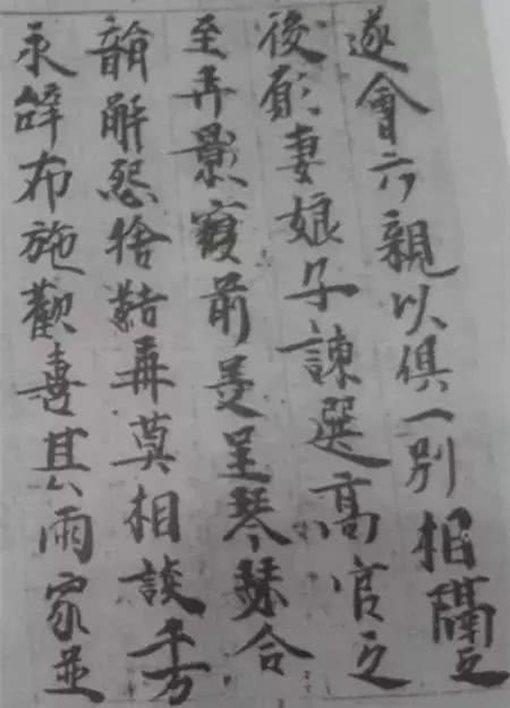 遂會六親以俱一別相隔之
後願妻娘子諫選高官之
至弄影前美呈琴瑟合
韻解怨捨結再莫相談千万
永辝布施歡喜其兩家並